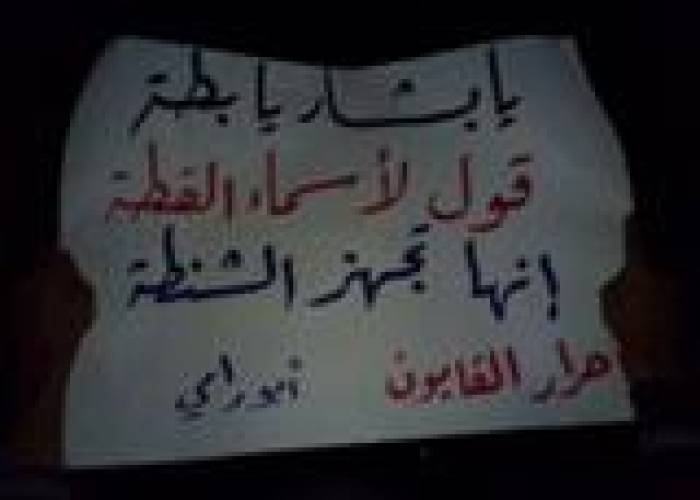 يا بشار يا بطة
قول لأسماء القطة
إنها تجهز الشنطة
حرار القابون